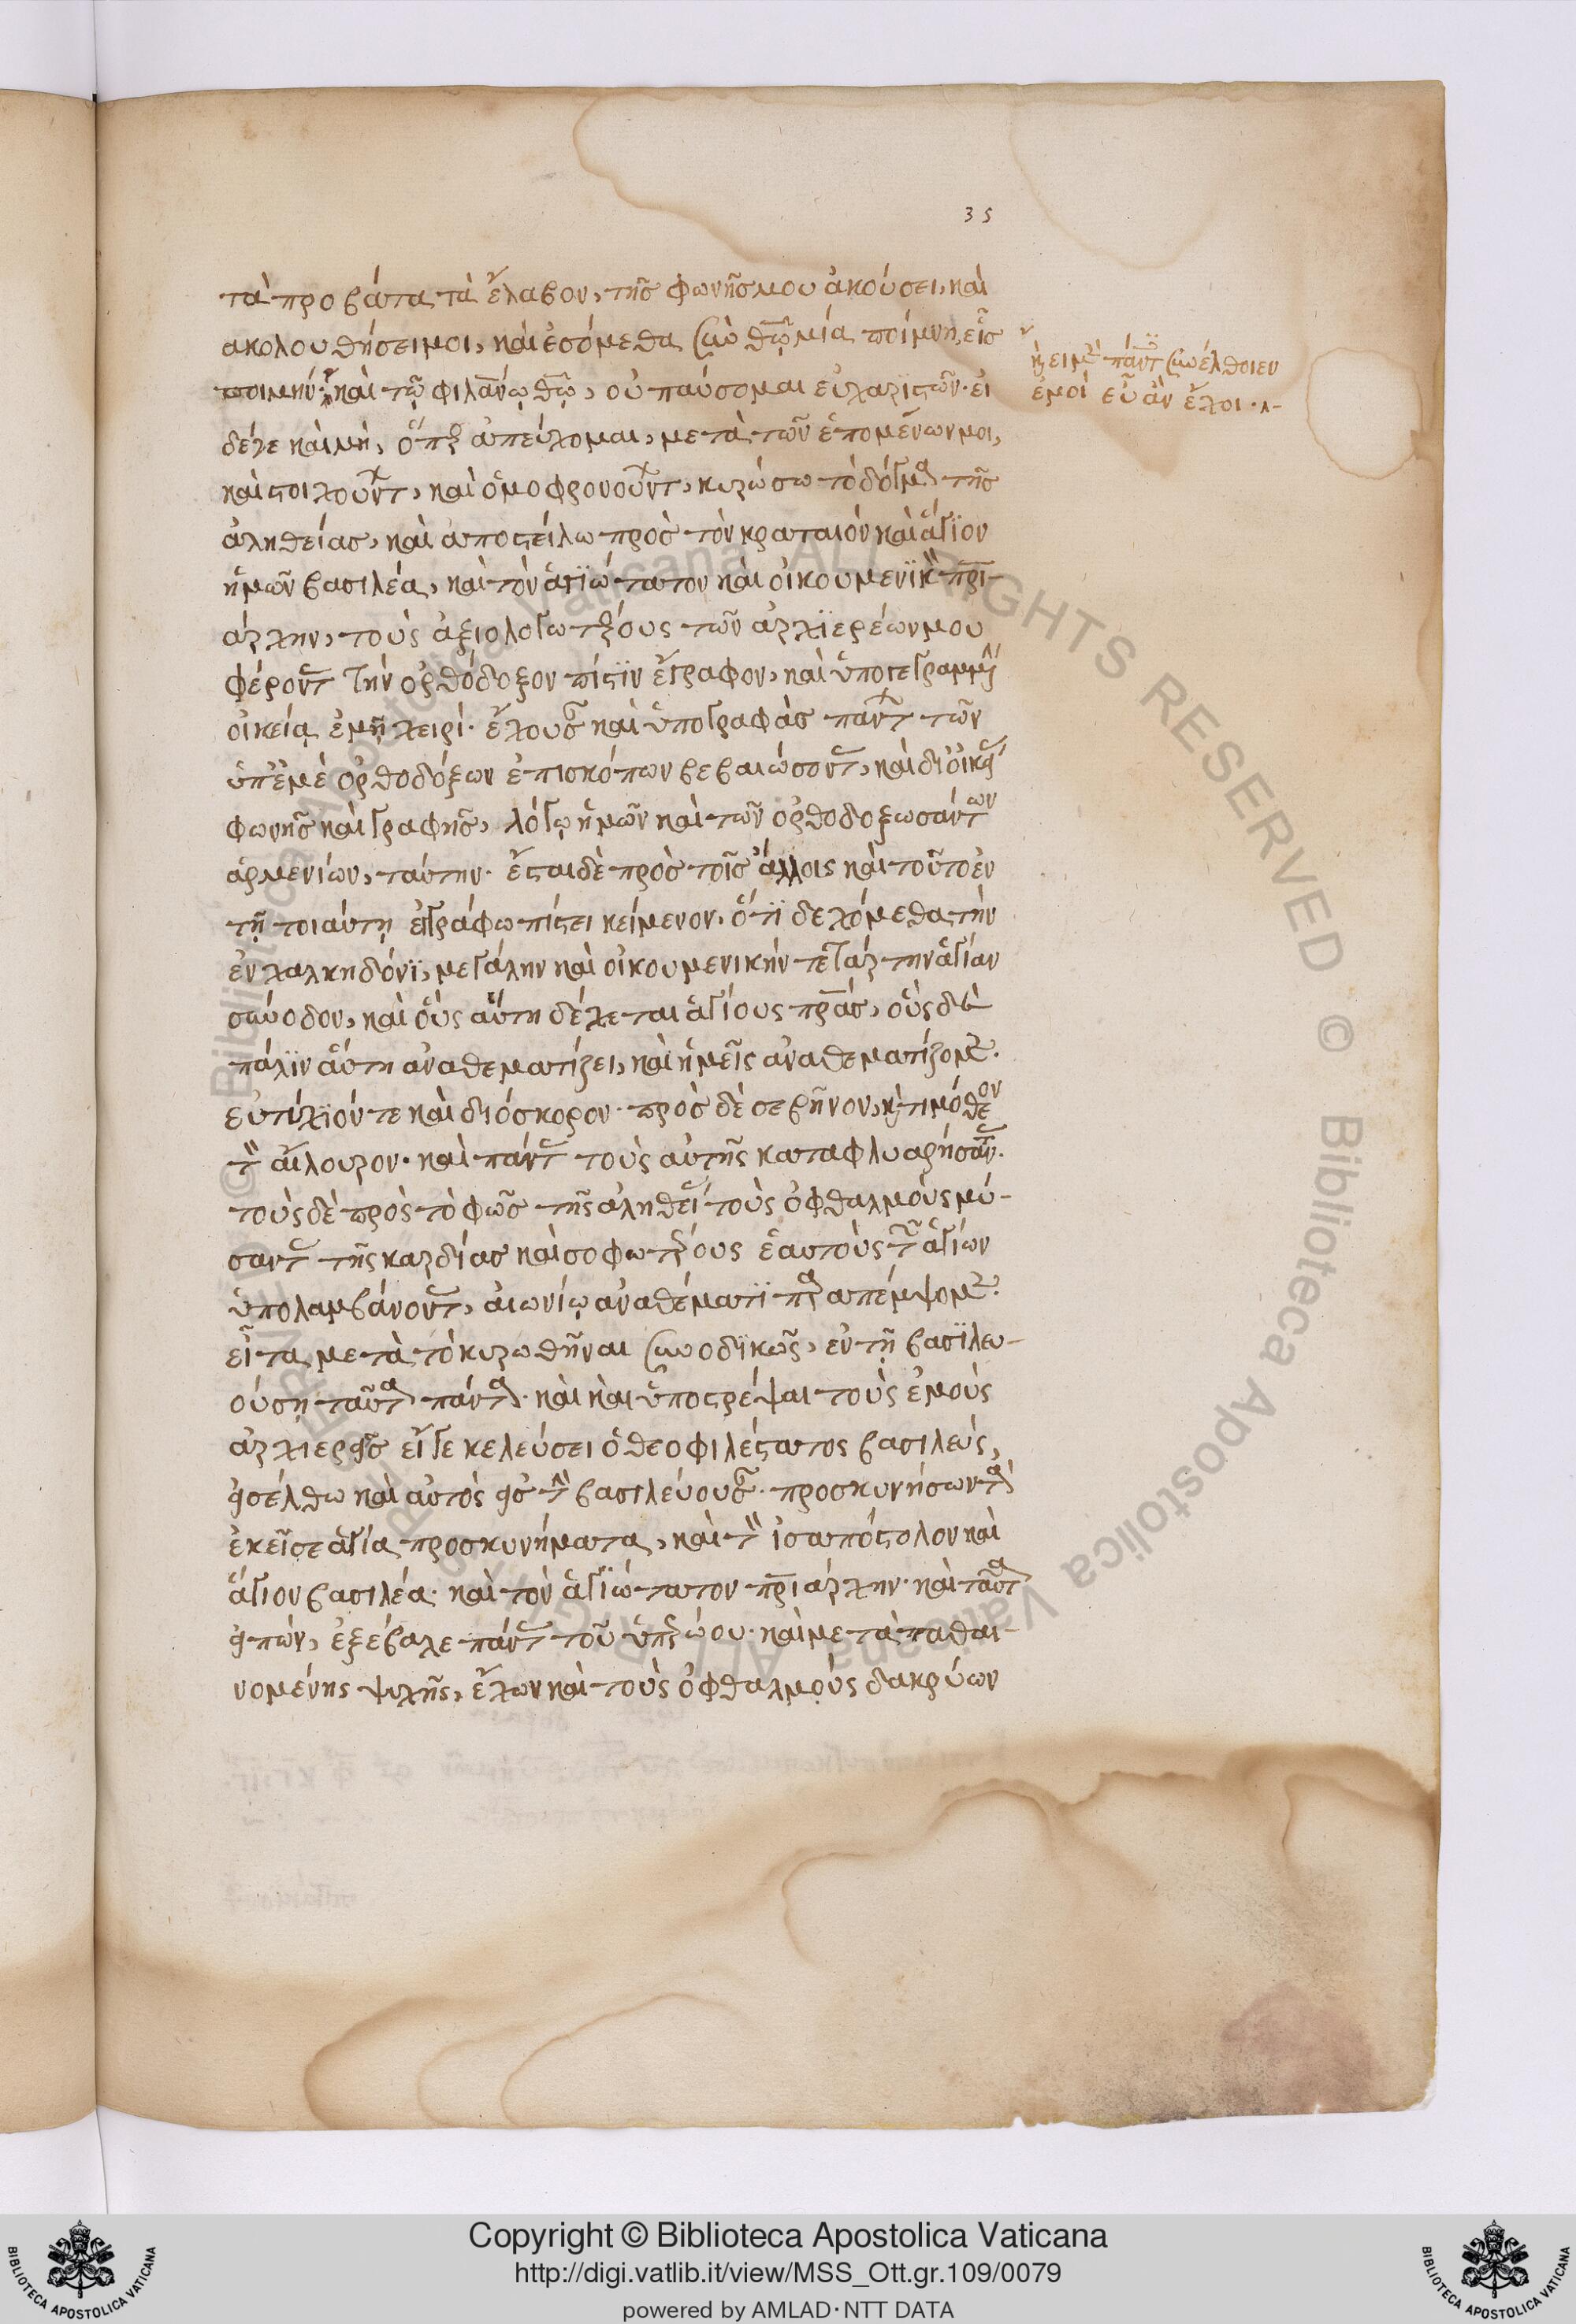 35
τὰ προβάτα τὰ ἔλαβον, τῆς φωνῆς μου ἀκούσει, καὶ
ακολουθήσει μοι, καὶ ἐσόμεθα σὺν θῶ μία ποίμνη, εἷς
ποιμήν· καὶ τῷ φιλανῳ θῶ, οὐ παύσομαι εὐχαριστῶν· εἰ
ἢ εἰ μὲν πάντ συνέλθοιεν
ἐμοί εὖ ἂν ἔχοι·
δέγε καὶ μὴ, ὅπερ ἀπεύχομαι, μετὰ τῶν ἑπομένων μοι,
καὶ στοιχούντ, καὶ ὁμοφρονούντ, κυρώσω τὸ δόγμα τῆς
ἀληθείας, καὶ ἀποστείλω πρὸς τὸν κραταιὸν καὶ ἅγϊον
ἡμῶν βασιλέα, καὶ τὸν ἁγϊώτατον καὶ οἰκουμενϊκὸν πρι-
άρχην, τοὺς ἀξιολογωτέρους τῶν ἀρχϊερέων μου
φέροντ τὴν ὀρθόδοξον πίστϊν ἔγγραφον, καὶ ὑπογεγραμμένην
οἰκείᾳ ἐμῇ χειρί· ἔχουσαν καὶ ὑπογραφὰς πάντ τῶν
ὑπ' ἐμὲ ὀρθοδόξων ἐπισκόπων βεβαιώσοντ, καὶ δι οἰκείας
φωνῆς καὶ γραφῆς, λόγῳ ἡμῶν καὶ τῶν ὀρθοδοξωσάντων
ἀρμενίων, ταύτην· ἔσται δὲ πρὸς τοῖς ἄλλοις καὶ τοῦτο ἐν
τῇ τοιαύτῃ ἐγγράφω πίστει κείμενον, ὅτϊ δεχόμεθα τὴν
ἐν χαλκηδόνϊ, μεγάλην καὶ οἰκουμενικὴν τετάρτην ἁγίαν
σύνοδον, καὶ οὓς αὕτη δέχεται ἁγίους πρας, οὓς δὲ
πάλϊν αὕτη ἀναθεματίζει, καὶ ἡμεῖς ἀναθεματίζομεν.
εὐτύχϊόν τε καὶ διόσκορον· πρὸς δὲ σεβῆνον, καὶ τιμόθεον
τὸν αἴλουρον· καὶ πάντ τοὺς αὐτῆς καταφλυαρήσαντ.
τοὺς δὲ πρὸς τὸ φῶς τῆς ἀληθείας τοὺς ὀφθαλμοὺς μύ-
σαντ τῆς καρδίας καὶ σοφωτέρους ἑαυτοὺς τῶν ἁγίων
ὑπολαμβάνοντ, αἰωνίῳ ἀναθέματϊ παραπέμψομεν.
εἶτα μετὰ τὸ κυρωθῆναι συνοδϊκῶς, ἐν τῇ βασϊλευ-
ούσῃ ταῦτα πάντα· καὶ καὶ ὑποστρέψαι τοὺς ἐμοὺς
ἀρχιερεῖς εἴ γε κελεύσει ὁ θεοφιλέστατος βασιλεὺς,
εἰσέλθω καὶ αὐτὸς εἰς τὴν βασιλεύουσαν· προσκυνήσων τὰ
ἐκεῖσε ἁγία προσκυνήματα, καὶ τὸν ἰσαπόστολον καὶ
ἅγιον βασιλέα· καὶ τὸν ἁγϊώτατον πριάρχην· καὶ ταῦτα
εἰπὼν, ἐξέβαλε πάντ τοῦ ὑπερώου· καὶ μετὰ παθαι-
νομένης ψυχῆς, ἔχων καὶ τοὺς ὀφθαλμοὺς δακρύων
Copyright © Biblioteca Apostolica Vaticana
http://digi.vatlib.it/view/MSS_Ott.gr.109/0079
powered by AMLAD·NTT DATA